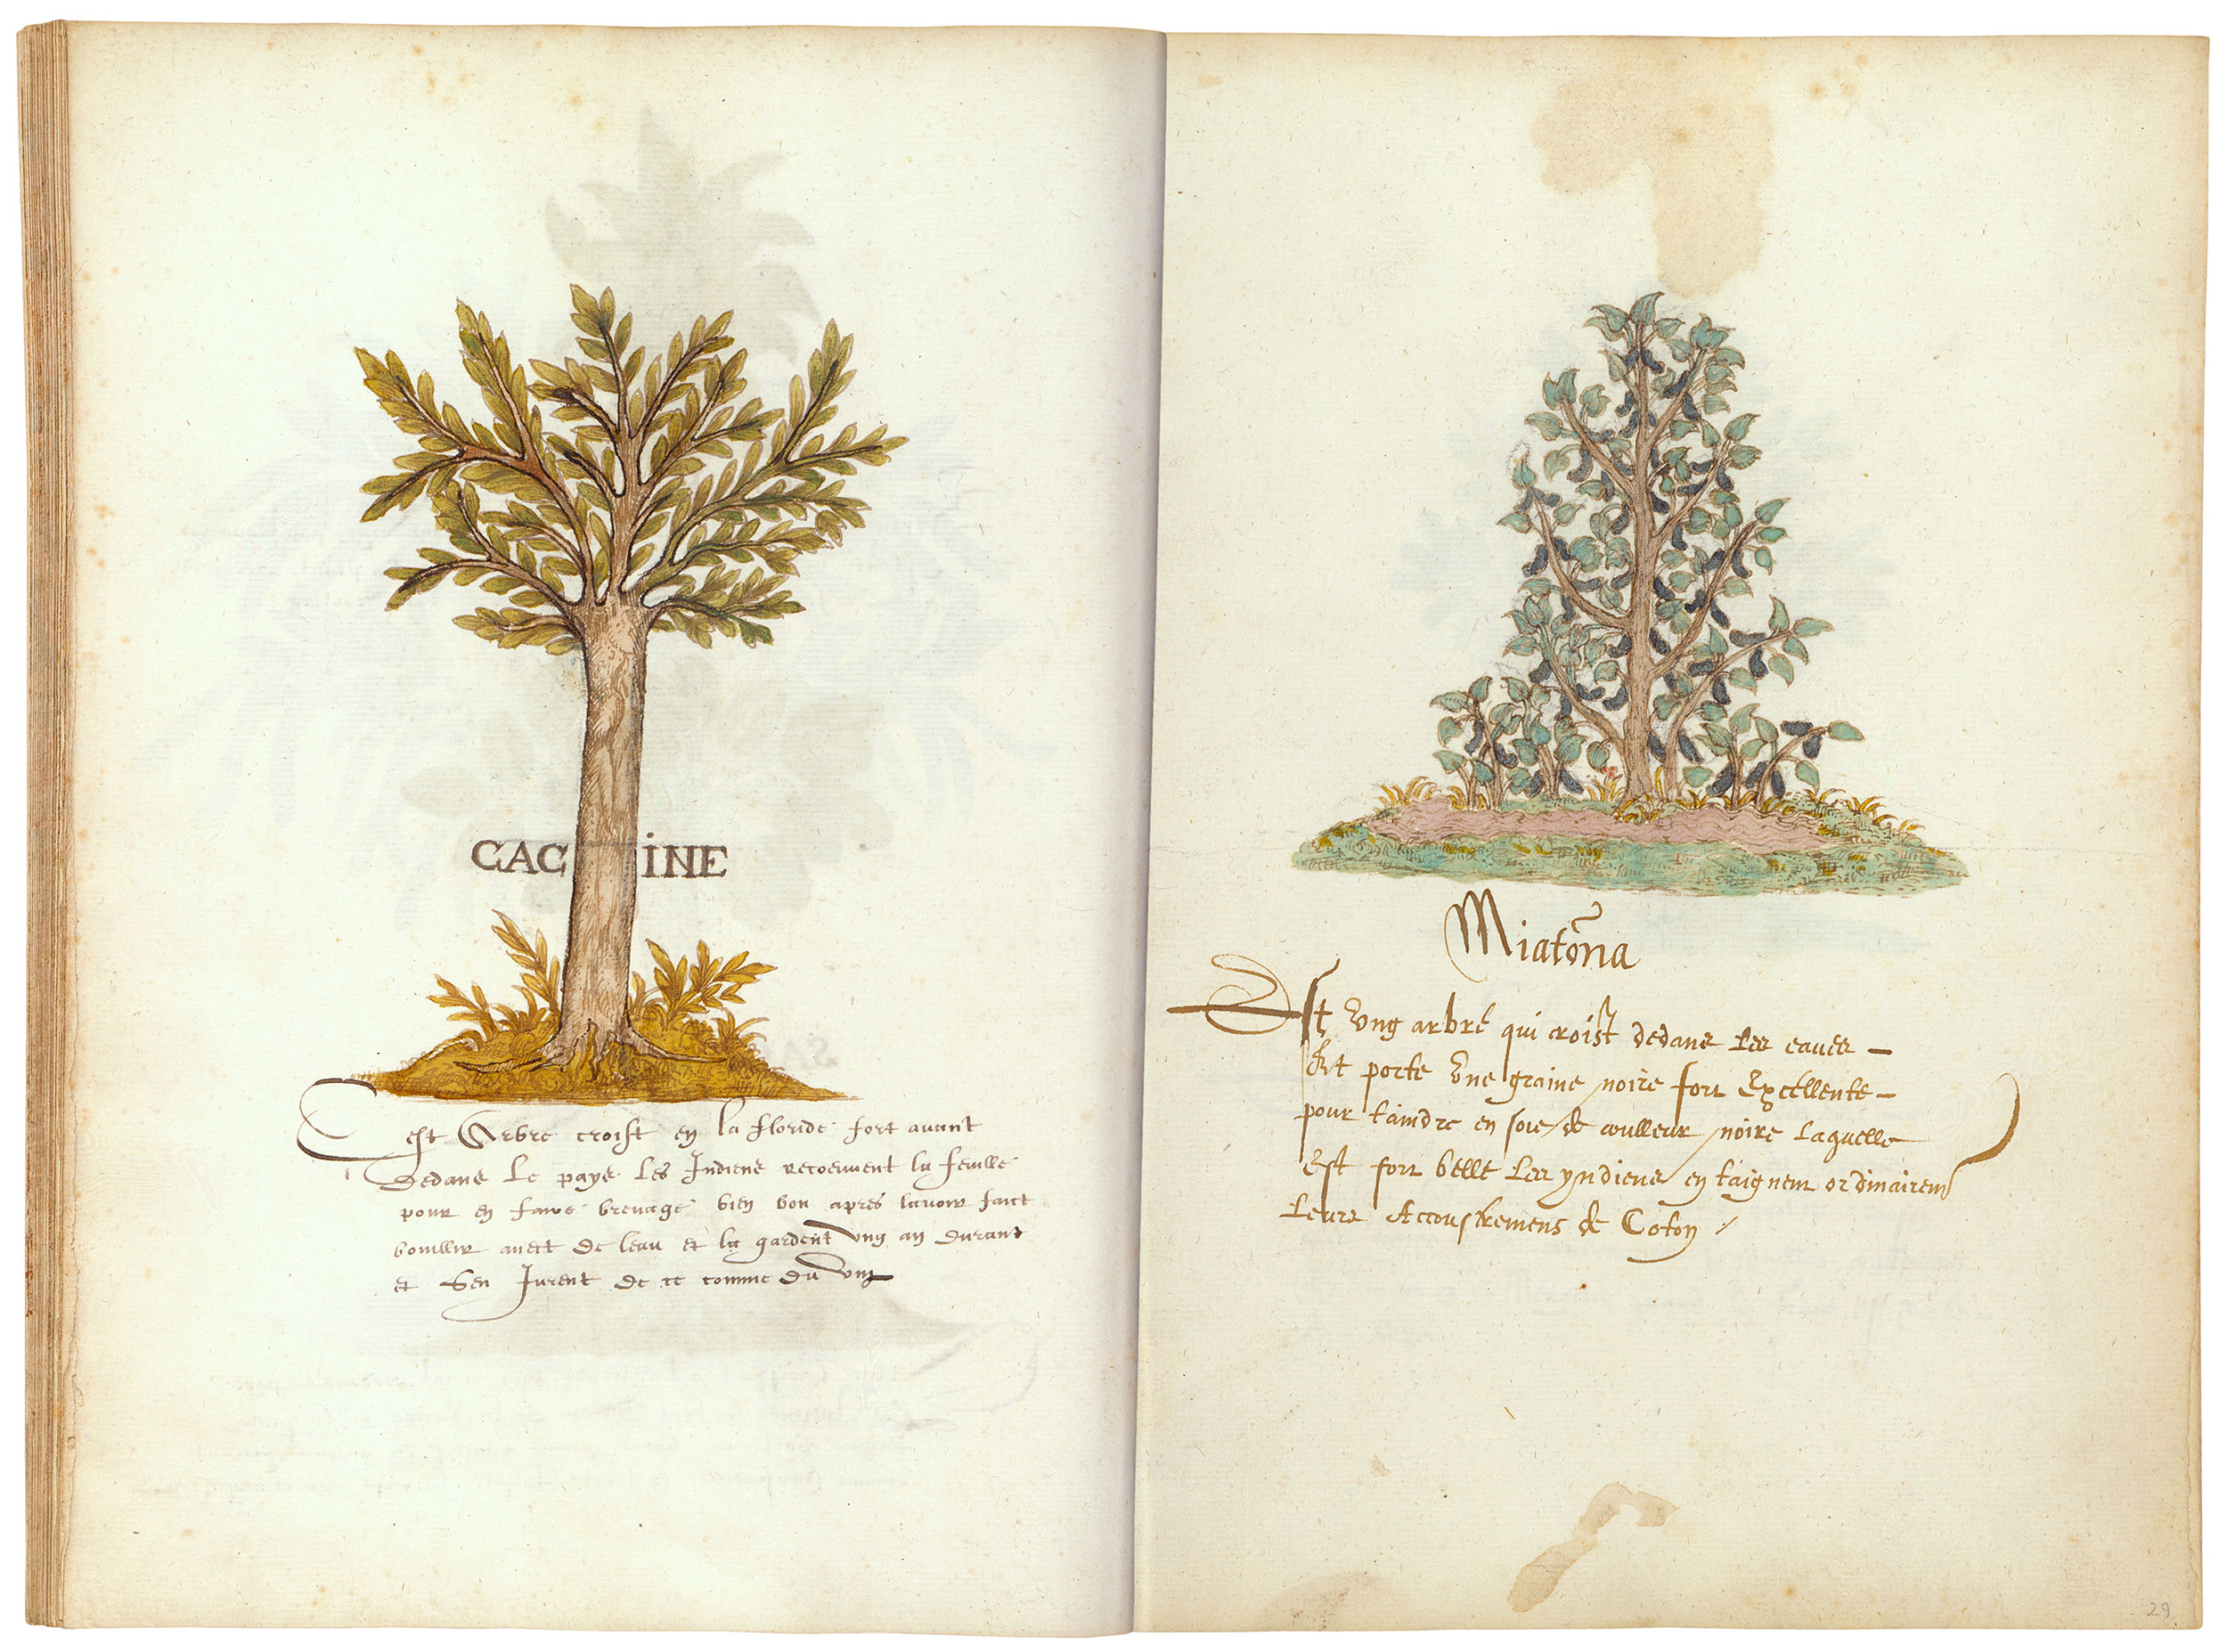 CAC INE
Cest Arbre croist en la floride fort auant
dedans le pays les Indiens recoeuuent la feuille
pour en faire breuage bien bon apres lauoir faict
bouillir auect de leau et la gardent ung an durant
et sen Jurent de ce comme du vin
Miatõna
Est vng arbre qui croist dedans les eaues
Et porte vne graine noire fort Excellente
pour taindre en soie de coulleur noire laquelle
Est fort belle les yndiens en taignent ordinairemt
leurs Accoustremens de Coton
29